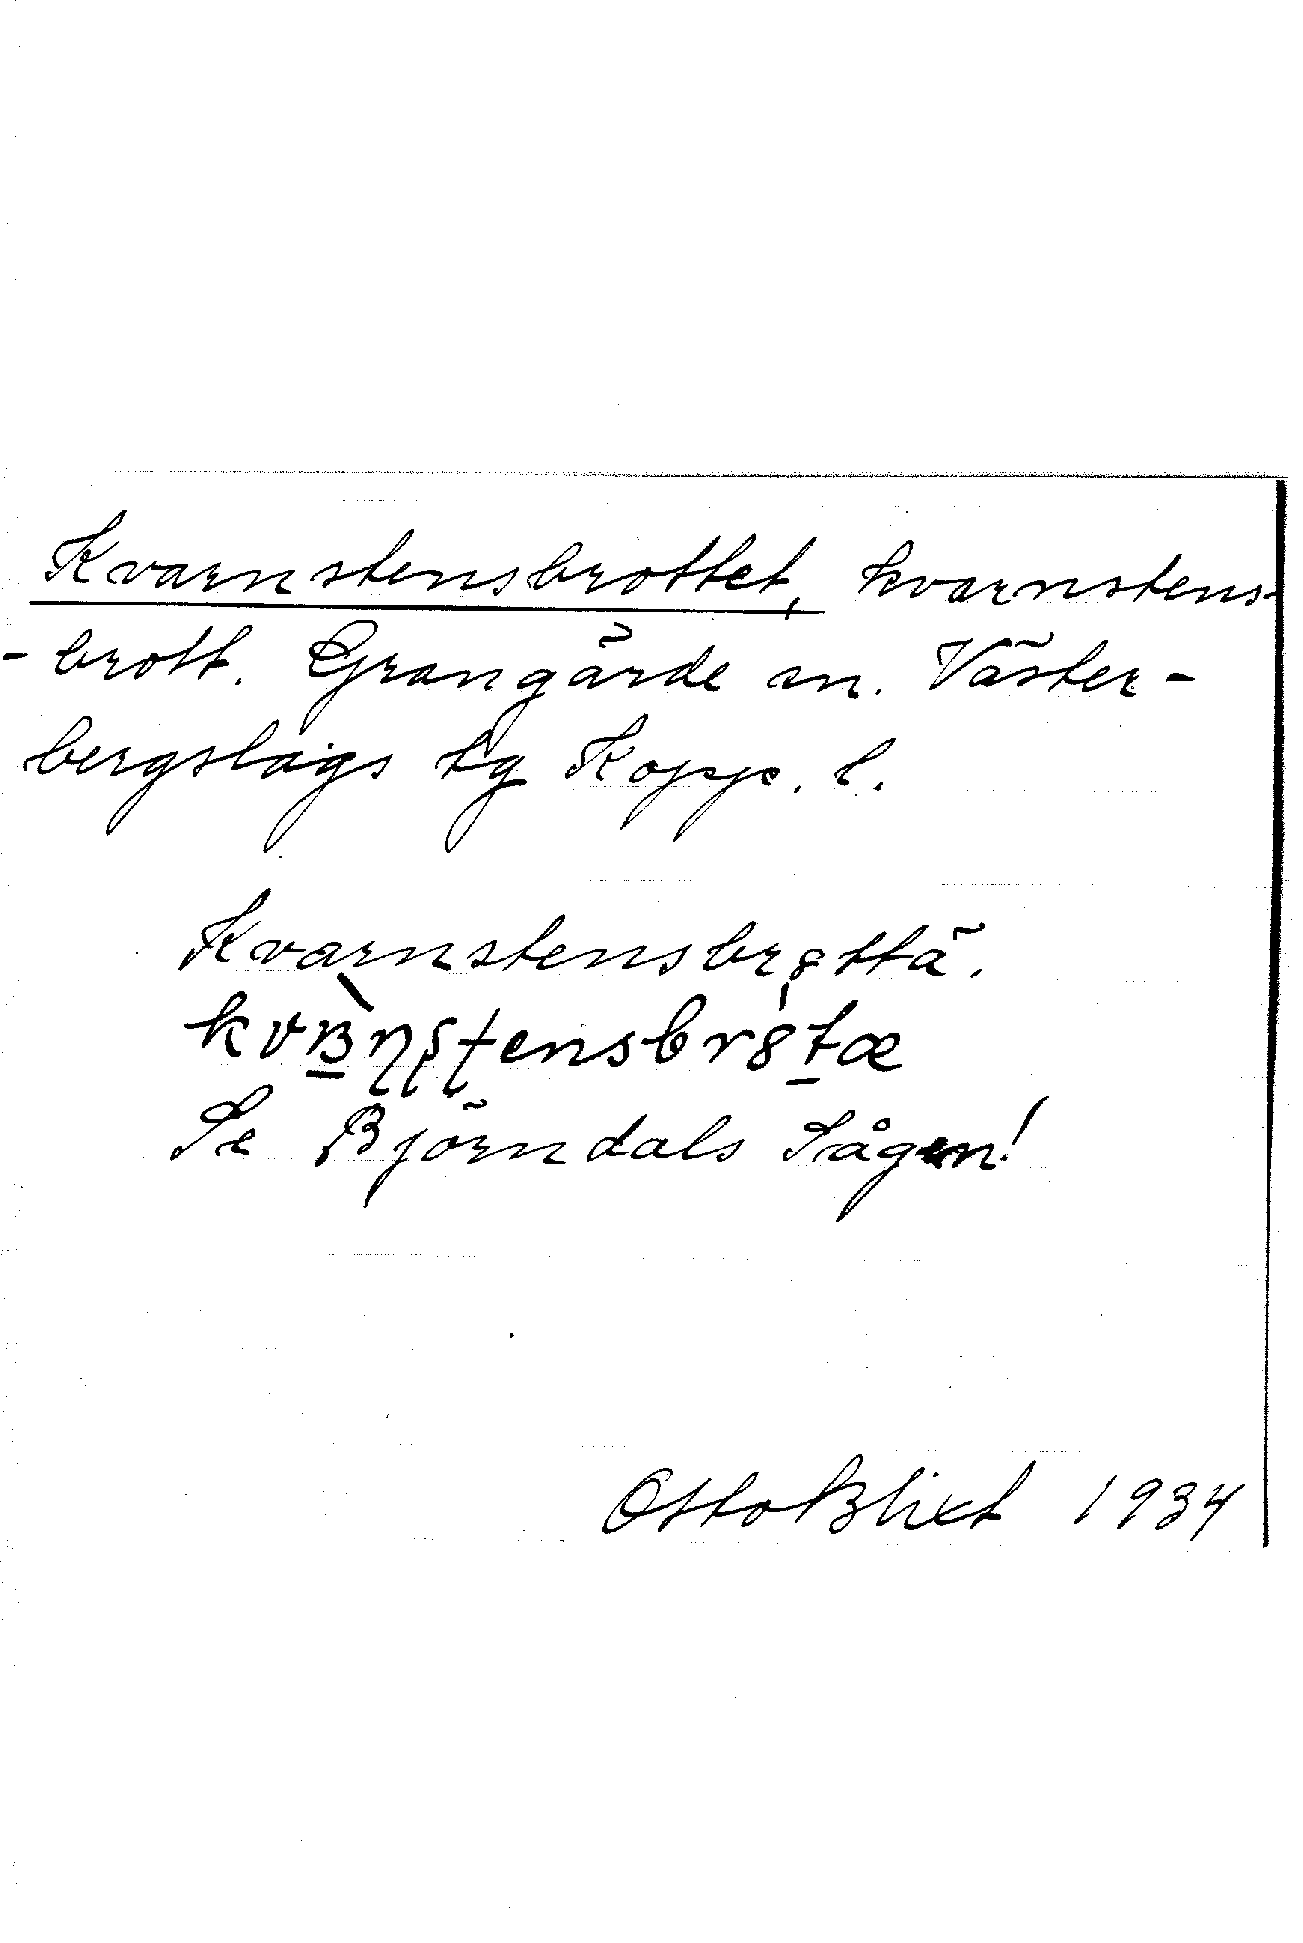 Kvarnstensbrottet, kvarnstens-
- brott. Grangärde sn. Väster-
bergslags tg Kopp. l.
Kvarnstensbrottä.
Se Björndals Sågen!
Otto Blixt 1934